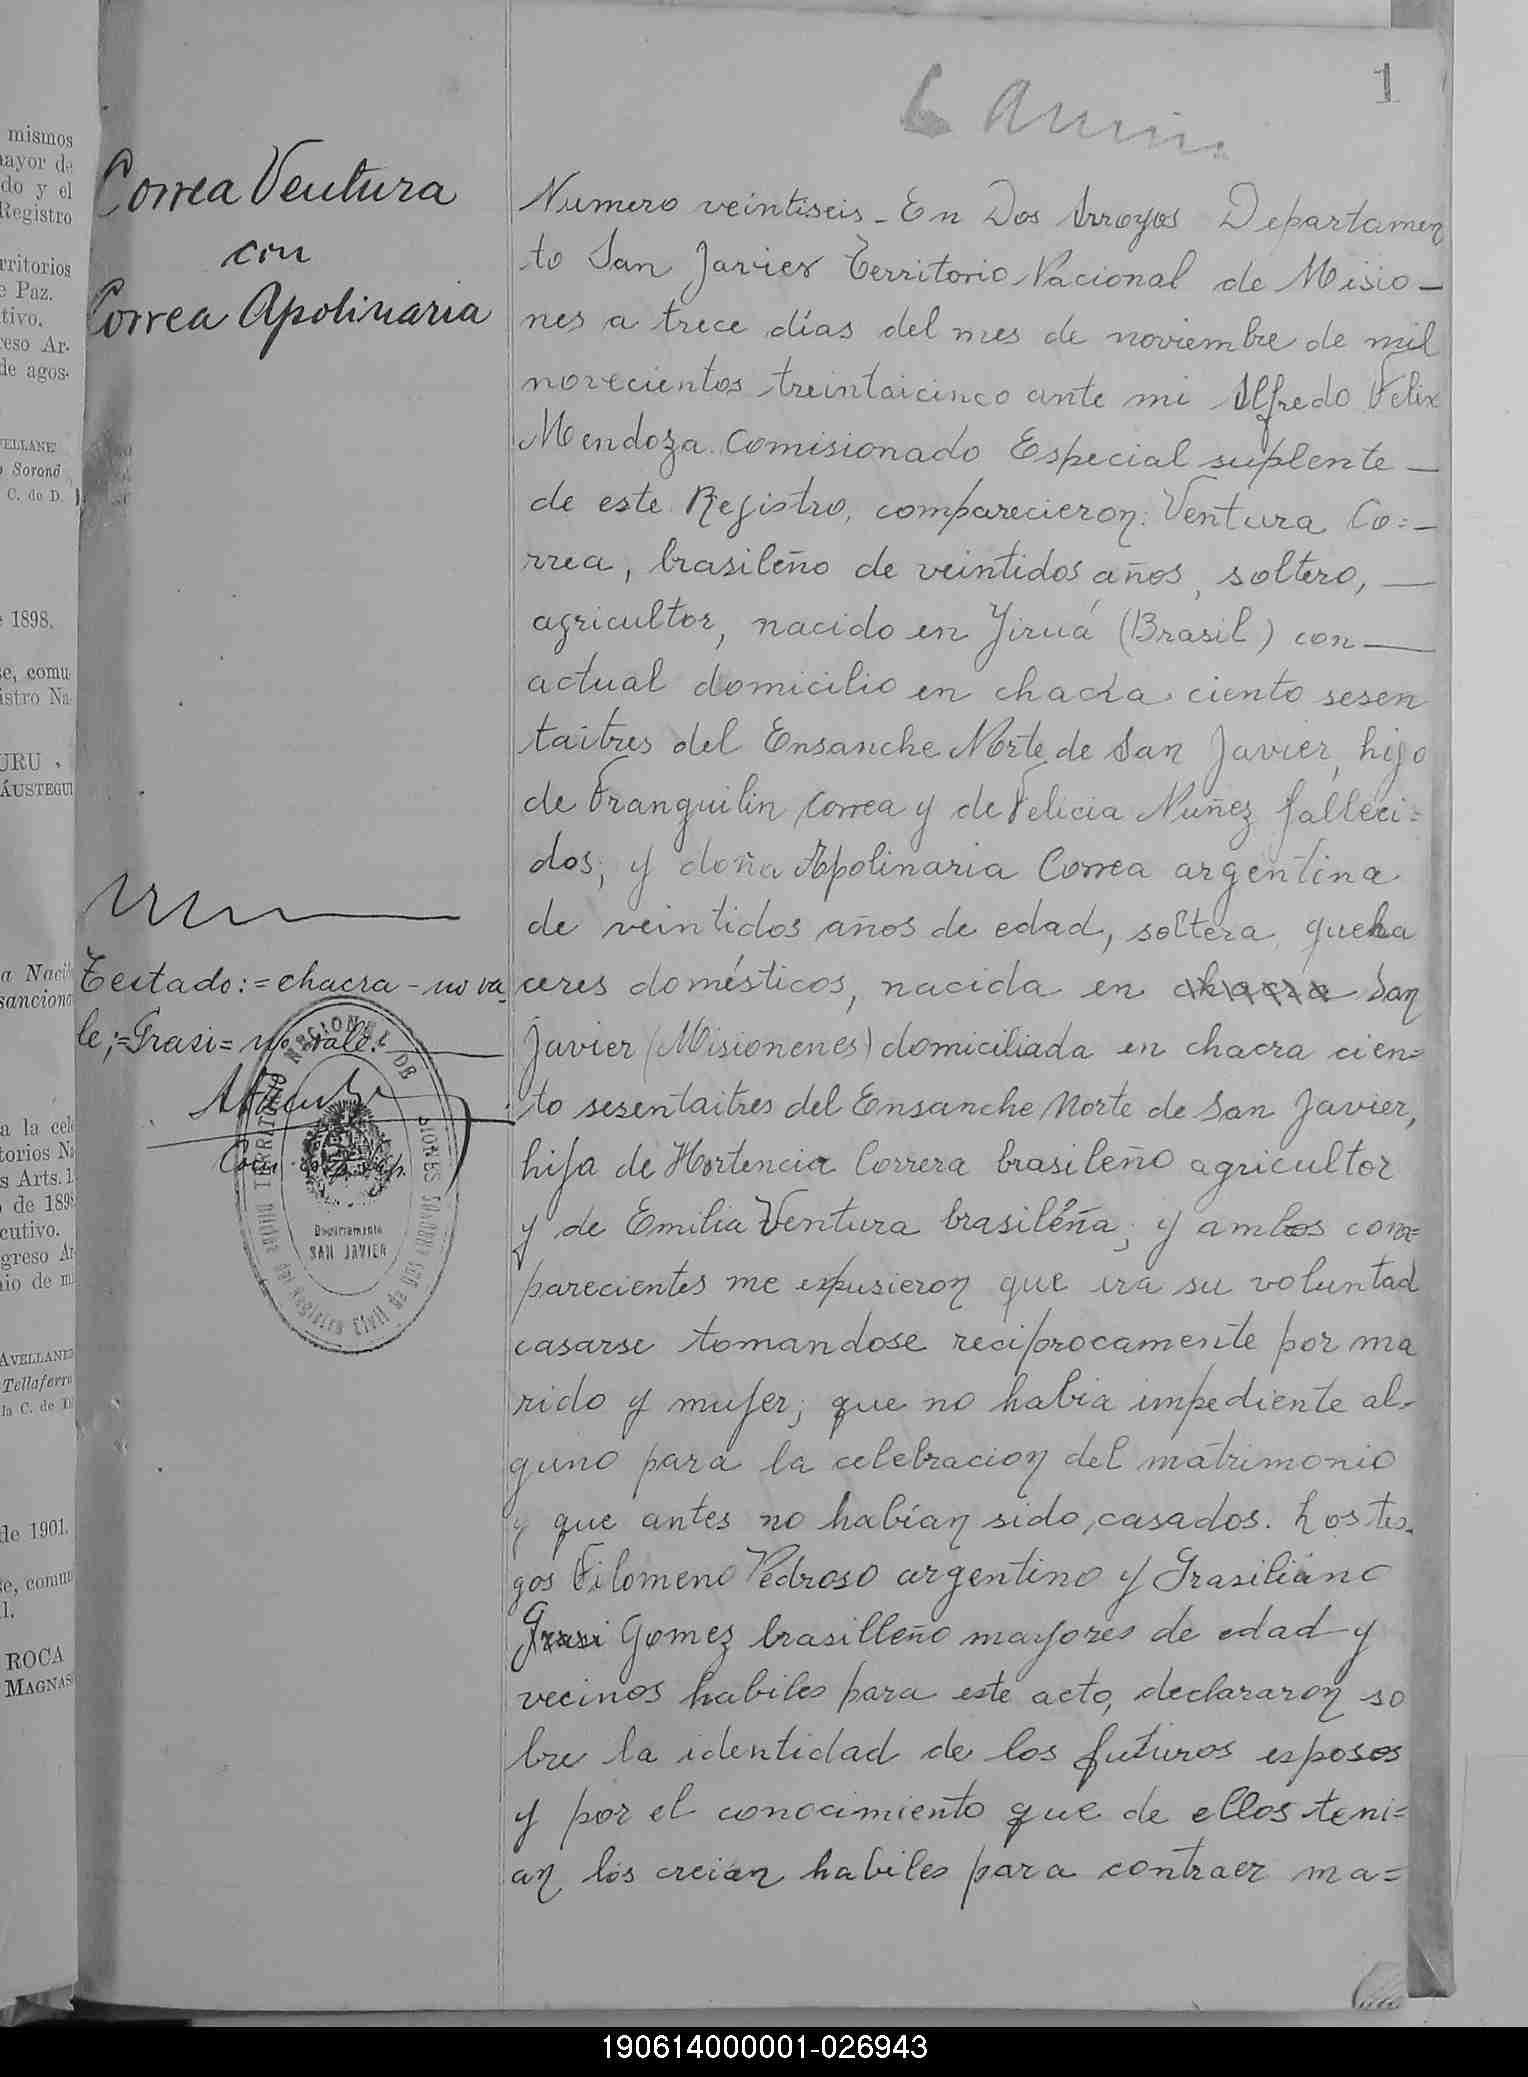 1
mismos
mayor de
do y el
Registro
rritorios
e Paz.
tivo.
reso Ar-
de agos-
VELLANE
Sorond
C. de D.
e 1898.
se, comu
istro Na-
URU
ÁUSTEGUI
a Naci
sanciona
a la cel
torios Na
s Arts. 1
de 189
cutivo.
greso Ar
nio de m
AVELLANE
Tellaferro
la C. de D
de 1901.
se, comu
l.
ROCA
MAGNAS
Correa Ventura
con
Correa Apolinaria
Testado:=chacra - no va
le;=Grasi= no vale.
TERRITORIO NACIONAL DE MISIONES
Departamento
SAN JAVIER
del Registro Civil de
Numero veintiseis - En Dos Arroyos Departamen
to San Javier Territorio Nacional de Misio -
nes a trece días del mes de noviembre de mil
novecientos treintaicinco ante mi Alfredo Felix
Mendoza Comisionado Especial suplente -
de este Registro, comparecieron: Ventura Co=-
rrea, brasileño de veintidos años, soltero, -
agricultor, nacido en Jiruá (Brasil) con -
actual domicilio en chacra ciento sesen
taitres del Ensanche Norte de San Javier, hijo
de Franquilin Correa y de Felicia Nuñez falleci=
dos; y doña Apolinaria Correa argentina
de veintidos años de edad, soltera, queha
ceres domésticos, nacida en chacra San
Javier (Misionenes) domiciliada en chacra cien=
to sesentaitres del Ensanche Norte de San Javier,
hija de Hortencia Correra brasileño agricultor
y de Emilia Ventura brasileña; y ambos com=
parecientes me expusieron que era su voluntad
casarse tomandose reciprocamente por ma
rido y mujer; que no habia impediente al-
guno para la celebracion del matrimonio
y que antes no habían sido, casados. Los tes-
gos Filomeno Pedroso argentino y Grasiliano
Grasi Gomez brasilleño mayores de edad y
vecinos habiles para este acto, declararon so
bre la identidad de los futuros esposos
y por el conocimiento que de ellos teni=
an los creian habiles para contraer ma=
190614000001-026943